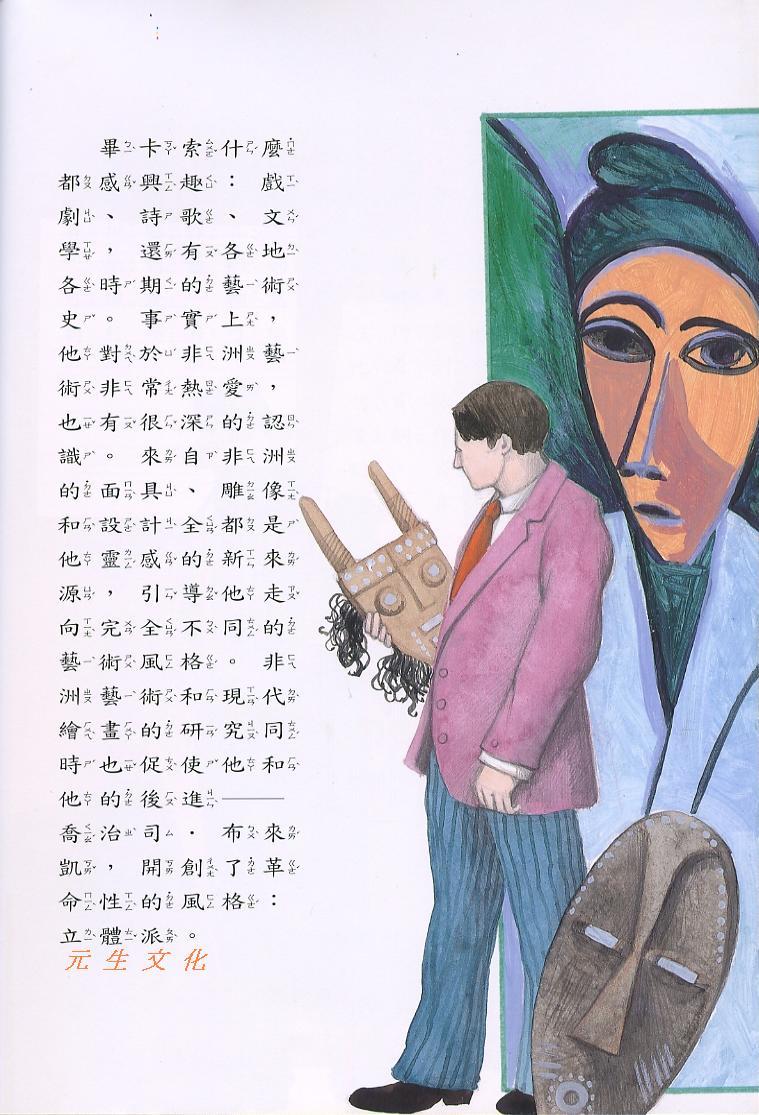 畢卡索什麼
都感興趣：戲
劇、詩歌、文
學，還有各地
各時期的藝術
史。事實上，
他對於非洲藝
術非常熱愛，
也有很深的認
識。來自非洲
的面具、雕像
和設計全都是
他靈感的新來
源，引導他走
向完全不同的
藝術風格。非
洲藝術和現代
繪畫的研究同
時也促使他和
他的後進——
喬治司·布來
凱，開創了革
命性的風格：
立體派。
元生文化